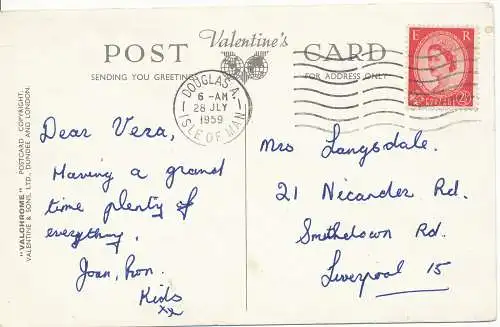 POST Valentine's CARD
SENDING YOU GREETINGS
FOR ADDRESS ONLY
E R
2½
DOUGLAS
6 - AM
28 JLY
1959
ISLE OF MAN
"VALCHROME" POSTCARD COPYRIGHT.
VALENTINE & SONS LTD., DUNDEE AND LONDON.
Dear Vera,
Having a grand
time plenty of
everything.
Joan, Ron.
Kids
xx
Mrs Langsdale.
21 Nicander Rd.
Smithdown Rd.
Liverpool 15